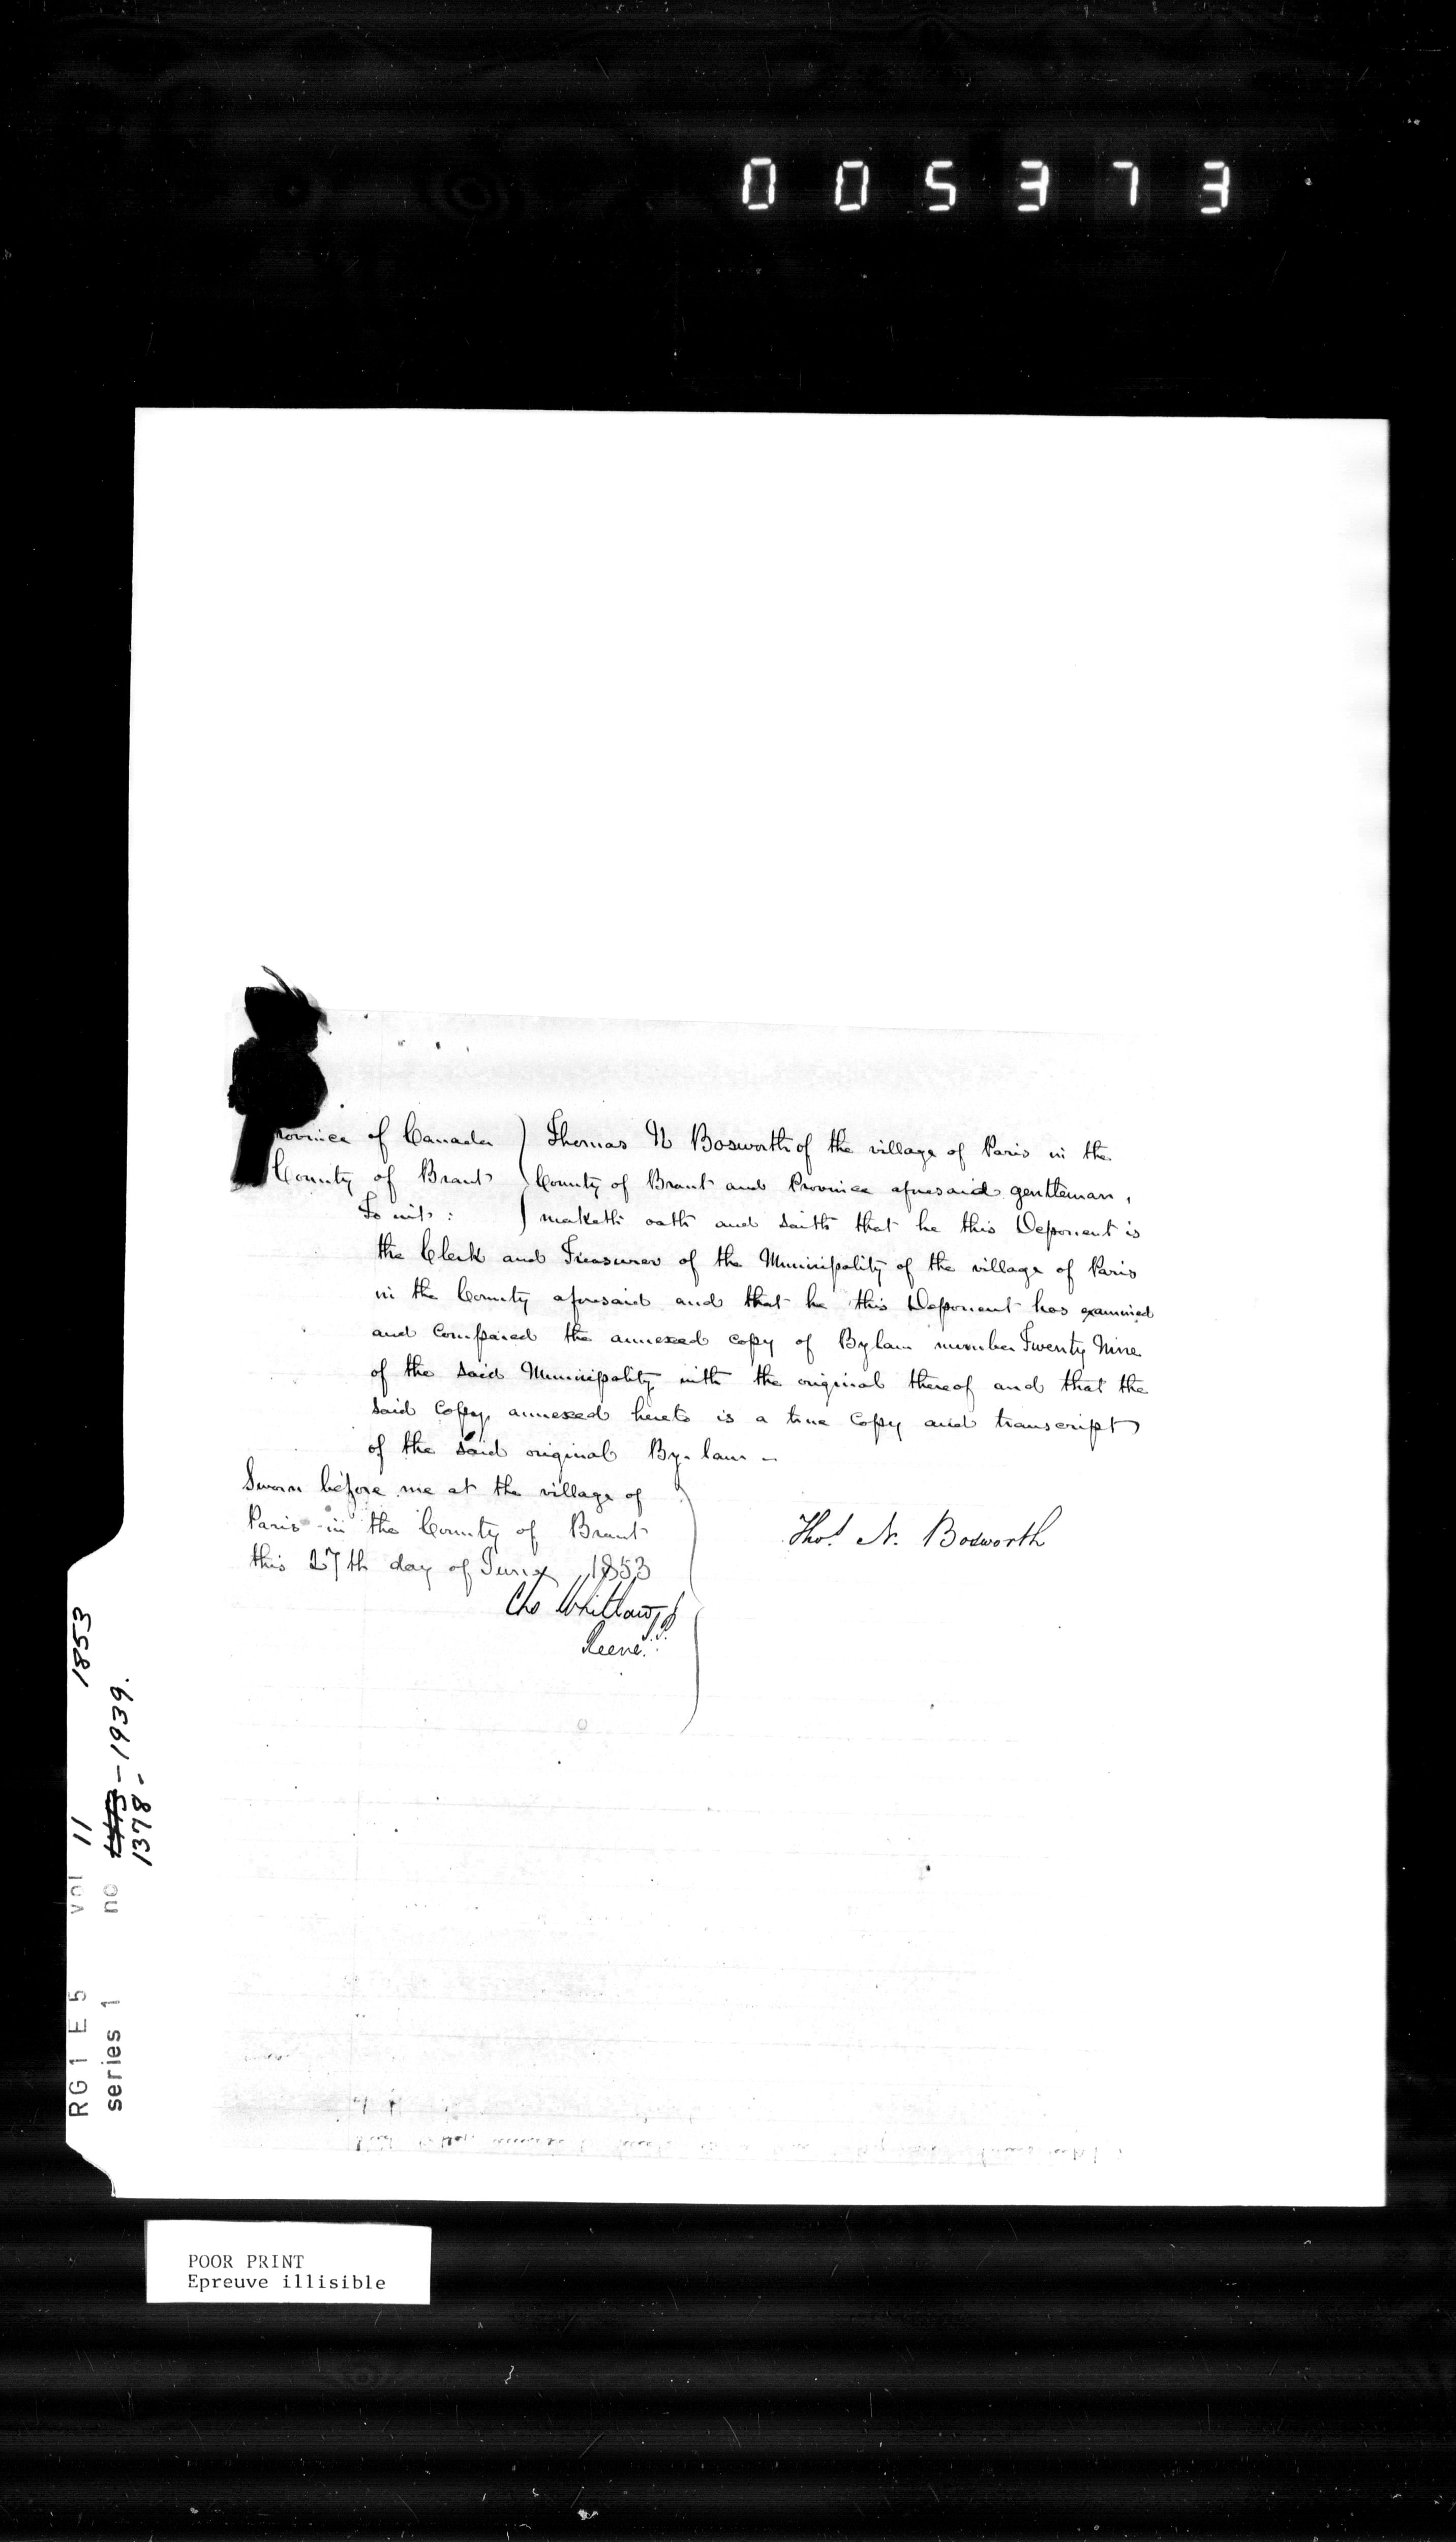 005373
Province of Canada } Thomas N Bosworth of the village of Paris in the
County of Brant } County of Brant and Province aforesaid gentleman,
To wit: } maketh oath and saith that he this Deponent is
the Clerk and Treasurer of the Municipality of the village of Paris
in the County aforesaid and that he this Deponent has examined
and compared the annexed copy of Bylaw number Twenty Nine
of the said Municipality with the original thereof and that the
said copy annexed hereto is a true copy and transcript
of the said original By-law -
Sworn before me at the village of
Paris in the County of Brant
this 27th day of June 1853
Thos. N. Bosworth
Chs Whitlaw J.P.
Reeve
RG1 E5 vol 11 1853
series 1 no 1939.
1378-
POOR PRINT
Epreuve illisible